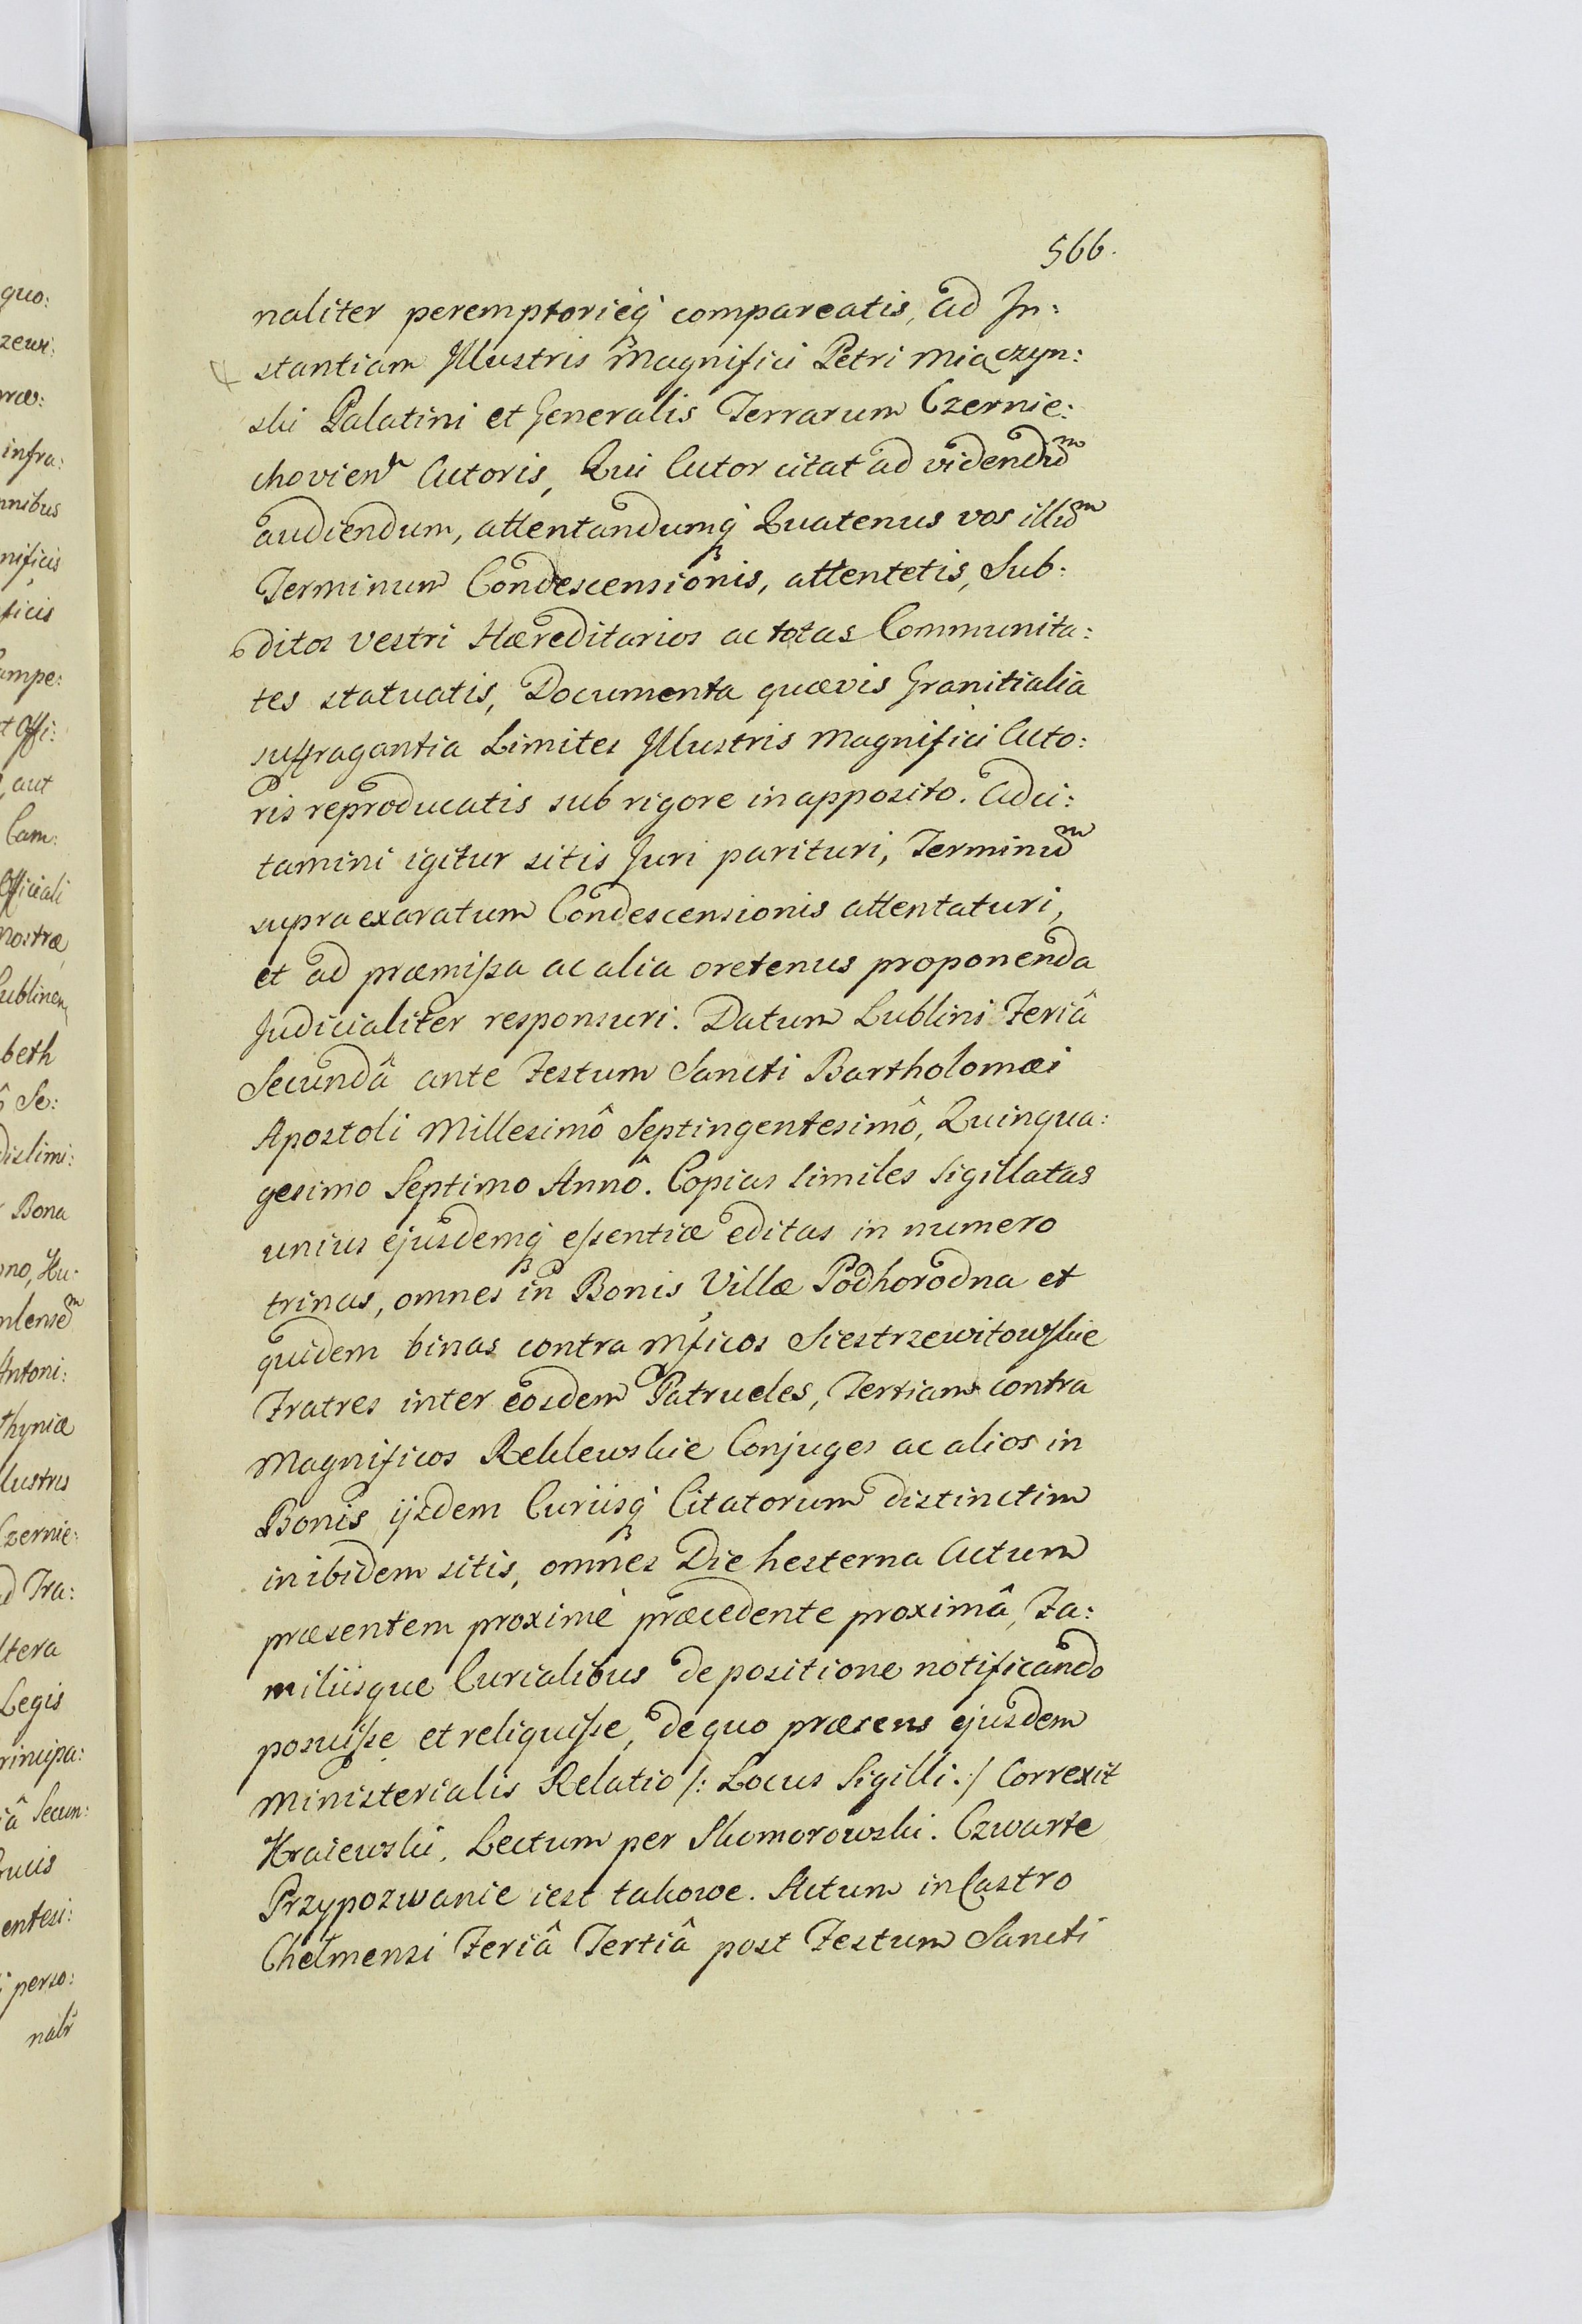 566.
naliter peremptorieq3 compareatis, ad In:
stantiam Illustris Magnifici Petri Miączyn:
ski Palatini et Generalis Terrarum Czernie:
chovien Actoris, Qui Actor citat ad videndum
audiendum, attentandumq3 Quatenus vos illum
Terminum Condescensionis, attentetis, Sub:
ditos vestri Hæreditarios ac totas Communita:
tes statuatis, Documenta quævis Granitialia
suffragantia Limites Illustris Magnifici Acto:
ris reproducatis sub rigore in apposito. Adci:
tamini igitur sitis Juri parituri, Terminum
supra exaratum Condescensionis attentaturi,
et ad præmissa ac alia oretenus proponenda
Judicialiter responsuri. Datum Lublini Feriâ
Secundâ ante Festum Sancti Bartholomæi
Apostoli Millesimô Septingentesimô, Quinqua:
gesimo Septimo Annô. Copias similes sigillatas
unius ejusdemq3 essentiæ editas in numero
trinas, omnes in Bonis Villæ Podhorodna et
quidem binas contra Mficos Siestrzewitowskie
Fratres inter eosdem Patrueles, Tertiam contra
Magnificos Reklewskie Conjuges ac alios in
Bonis ijsdem Curiisq3 Citatorum distinctim
inibidem sitis, omnes Die hesterna Actum
præsentem proximè præcedente proximâ, Fa:
miliisque Curialibus de positione notificando
posuisse et reliquisse, de quo præsens ejusdem
Ministerialis Relatio /: Locus Sigilli :/ Correxit
Kraiewski, Lectum per Skomorowski. Czwarte
Przypozwanie iest takowe. Actum in Castro
Chełmensi Feriâ Tertiâ post Festum Sancti
quo:
zewi:
præ:
infra:
mnibus
nificis
ficis
Campe:
et Offi:
, aut
Cam:
Officiali
nostræ
Lublinen
beth
ô Se:
dislimi:
Bona
no, Hu:
nlensem
Antoni:
thyniæ
llustris
Czernie:
ad Tra:
ltera
Legis
rincipa:
iâ Secun:
rucis
entesi:
perso:
nalr